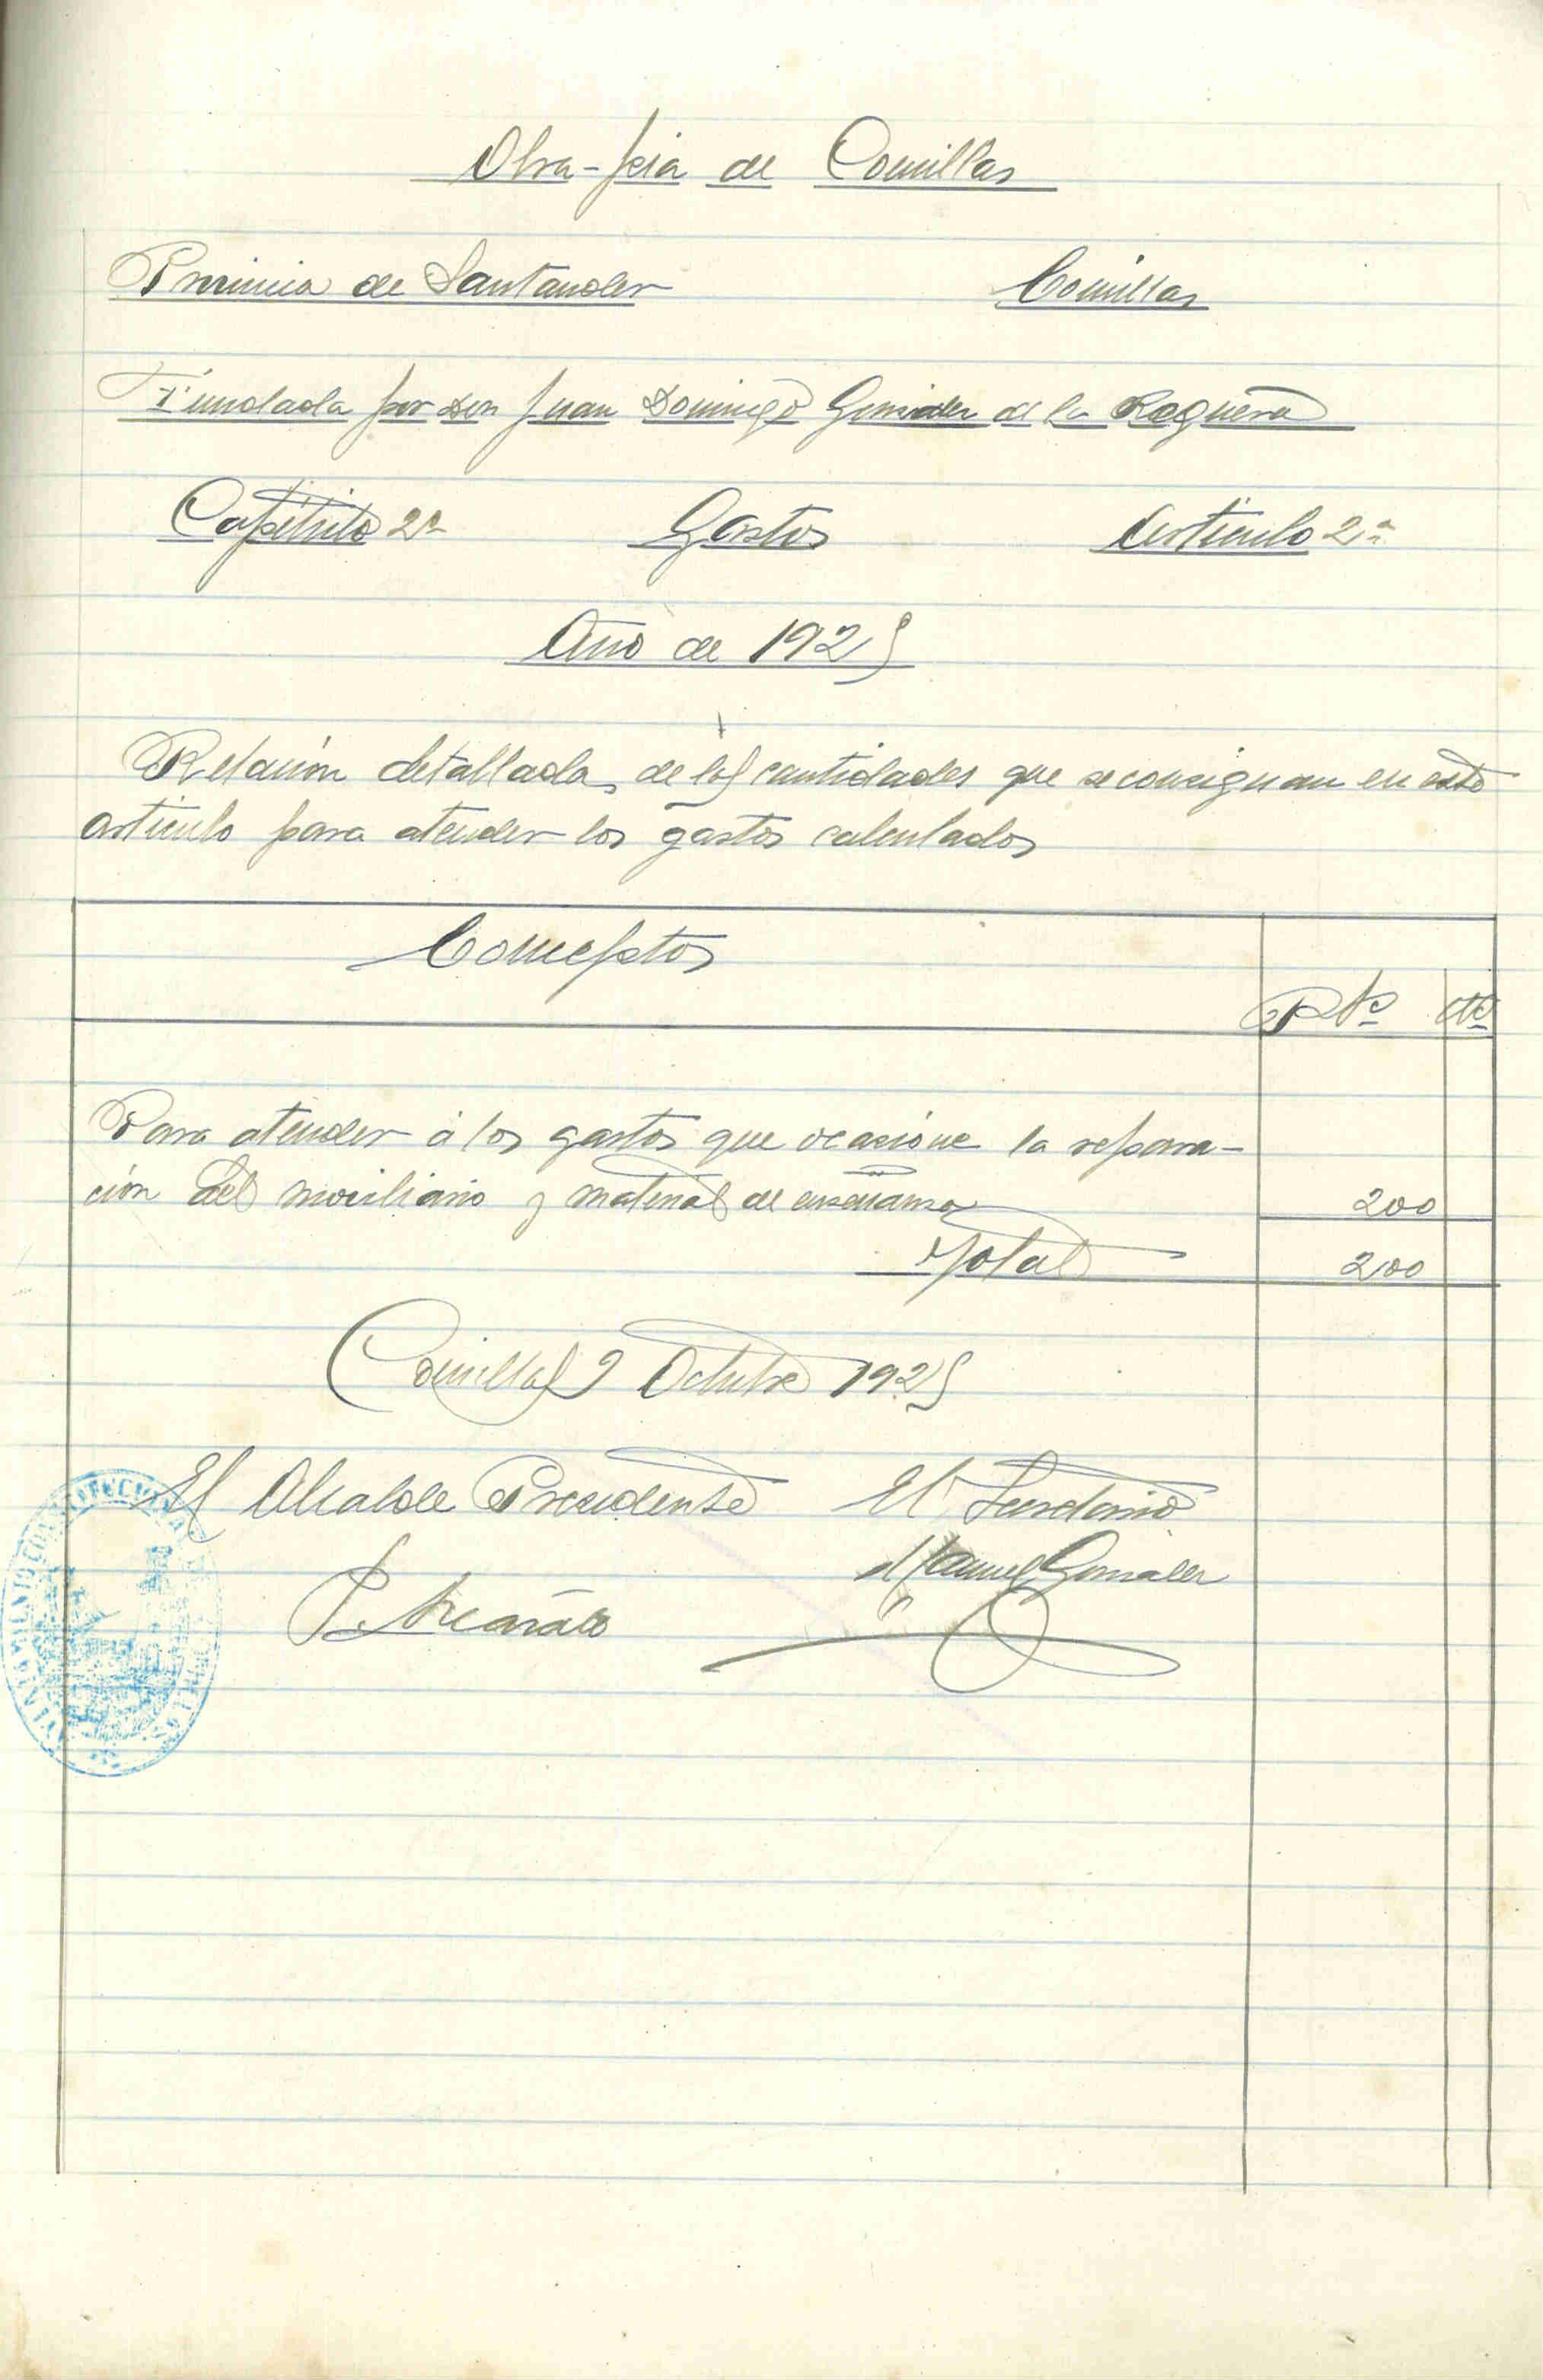 Obra-pia de Comillas
Provincia de Santander Comillas
Fundada por Don Juan Domingo González de la Reguera
Capítulo 2º Gastos Artículo 2º
Año de 1925
Relación detallada de las cantidades que se consignan en este
artículo para atender los gastos calculados
Conceptos
Pts Cts
Para atender á los gastos que ocasione la repara-
ción del moviliario y material de enseñanza 200
Total 200
Comillas 9 Octubre 1925
El Alcalde Presidente El Secretario
Manuel González